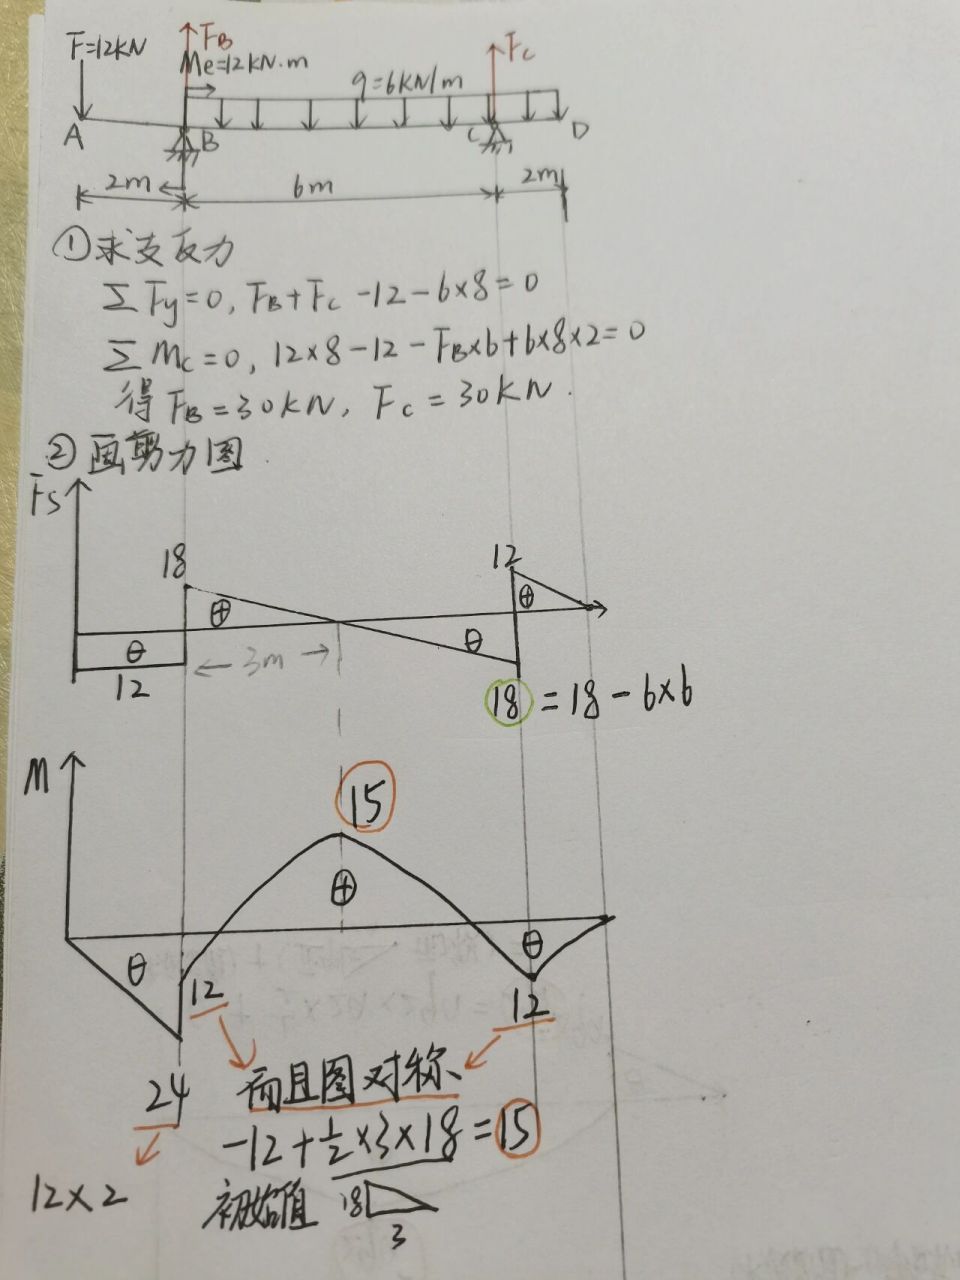 F=12KN
F_B
Me=12KN.m
q=6KN/m
F_C
A
B
C
D
2m
6m
2m
①求支反力
ΣFy=0, F_B+F_C-12-6×8=0
ΣM_C=0, 12×8-12-F_B×6+6×8×2=0
得 F_B=30KN, F_C=30KN.
②画剪力图
Fs
18
12
⊕
⊕
⊖
⊖
3m
12
18=18-6×6
M
15
⊕
⊖
⊖
12
12
24
而且图对称
-12+½×3×18=15
12×2
初始值
18
3